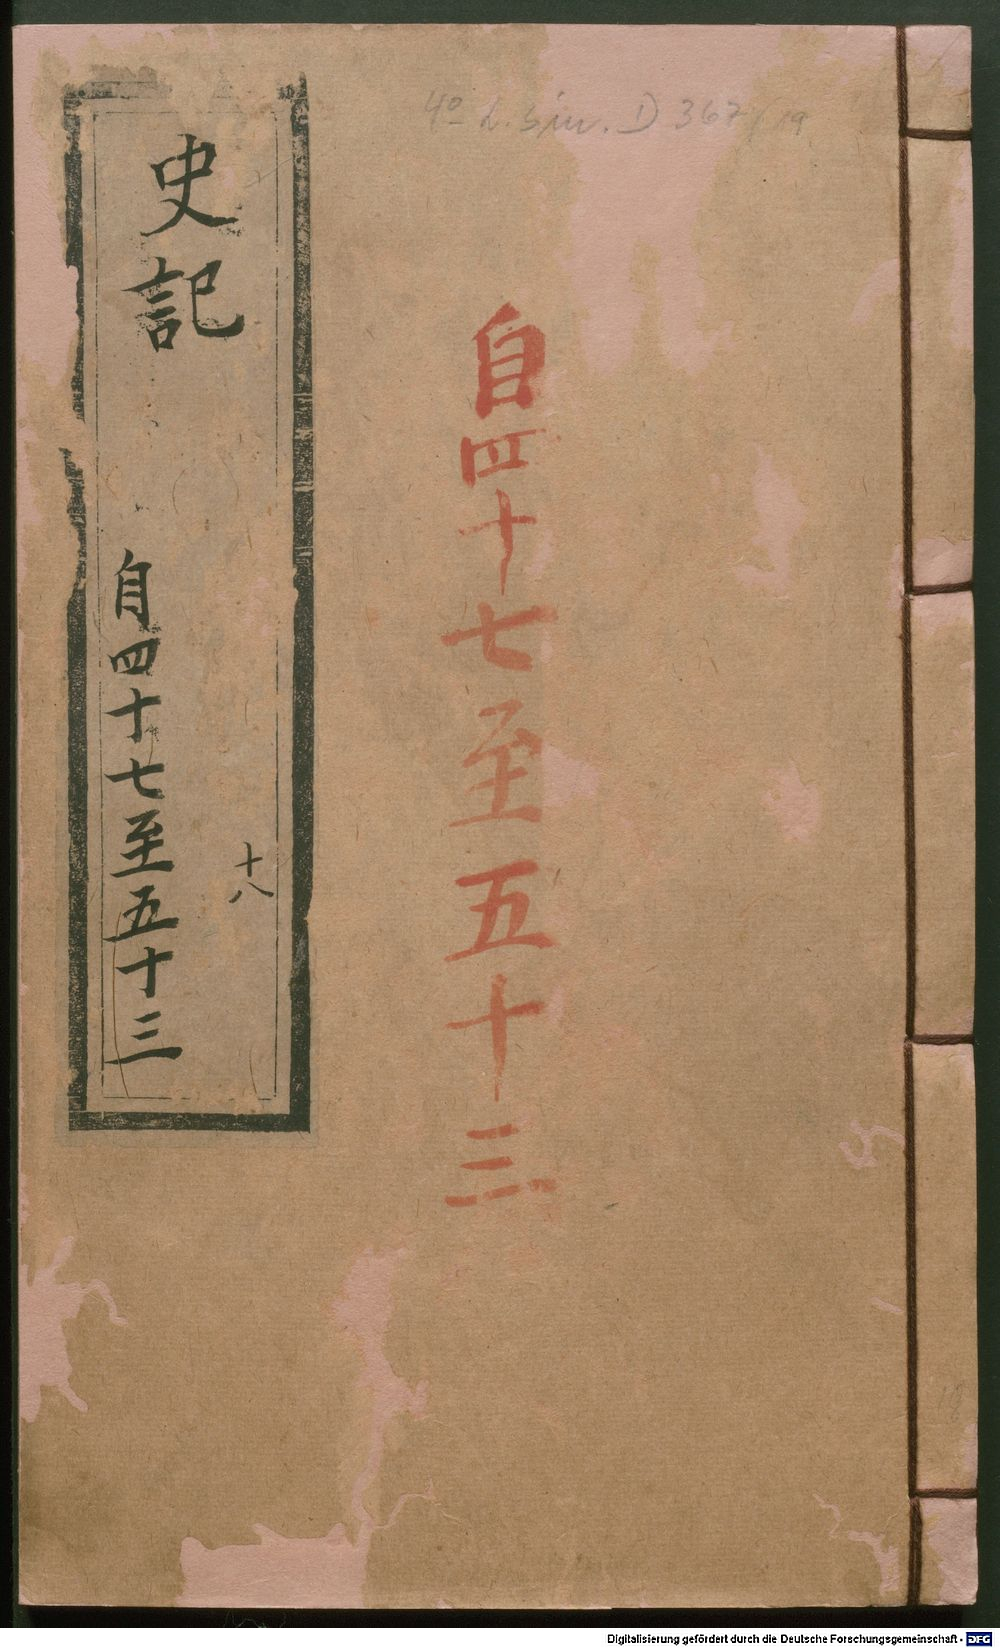 4° L. sin. D 367/19
自四十七至五十三
十八
史記
自四十七至五十三
18
Digitalisierung gefördert durch die Deutsche Forschungsgemeinschaft - DFG